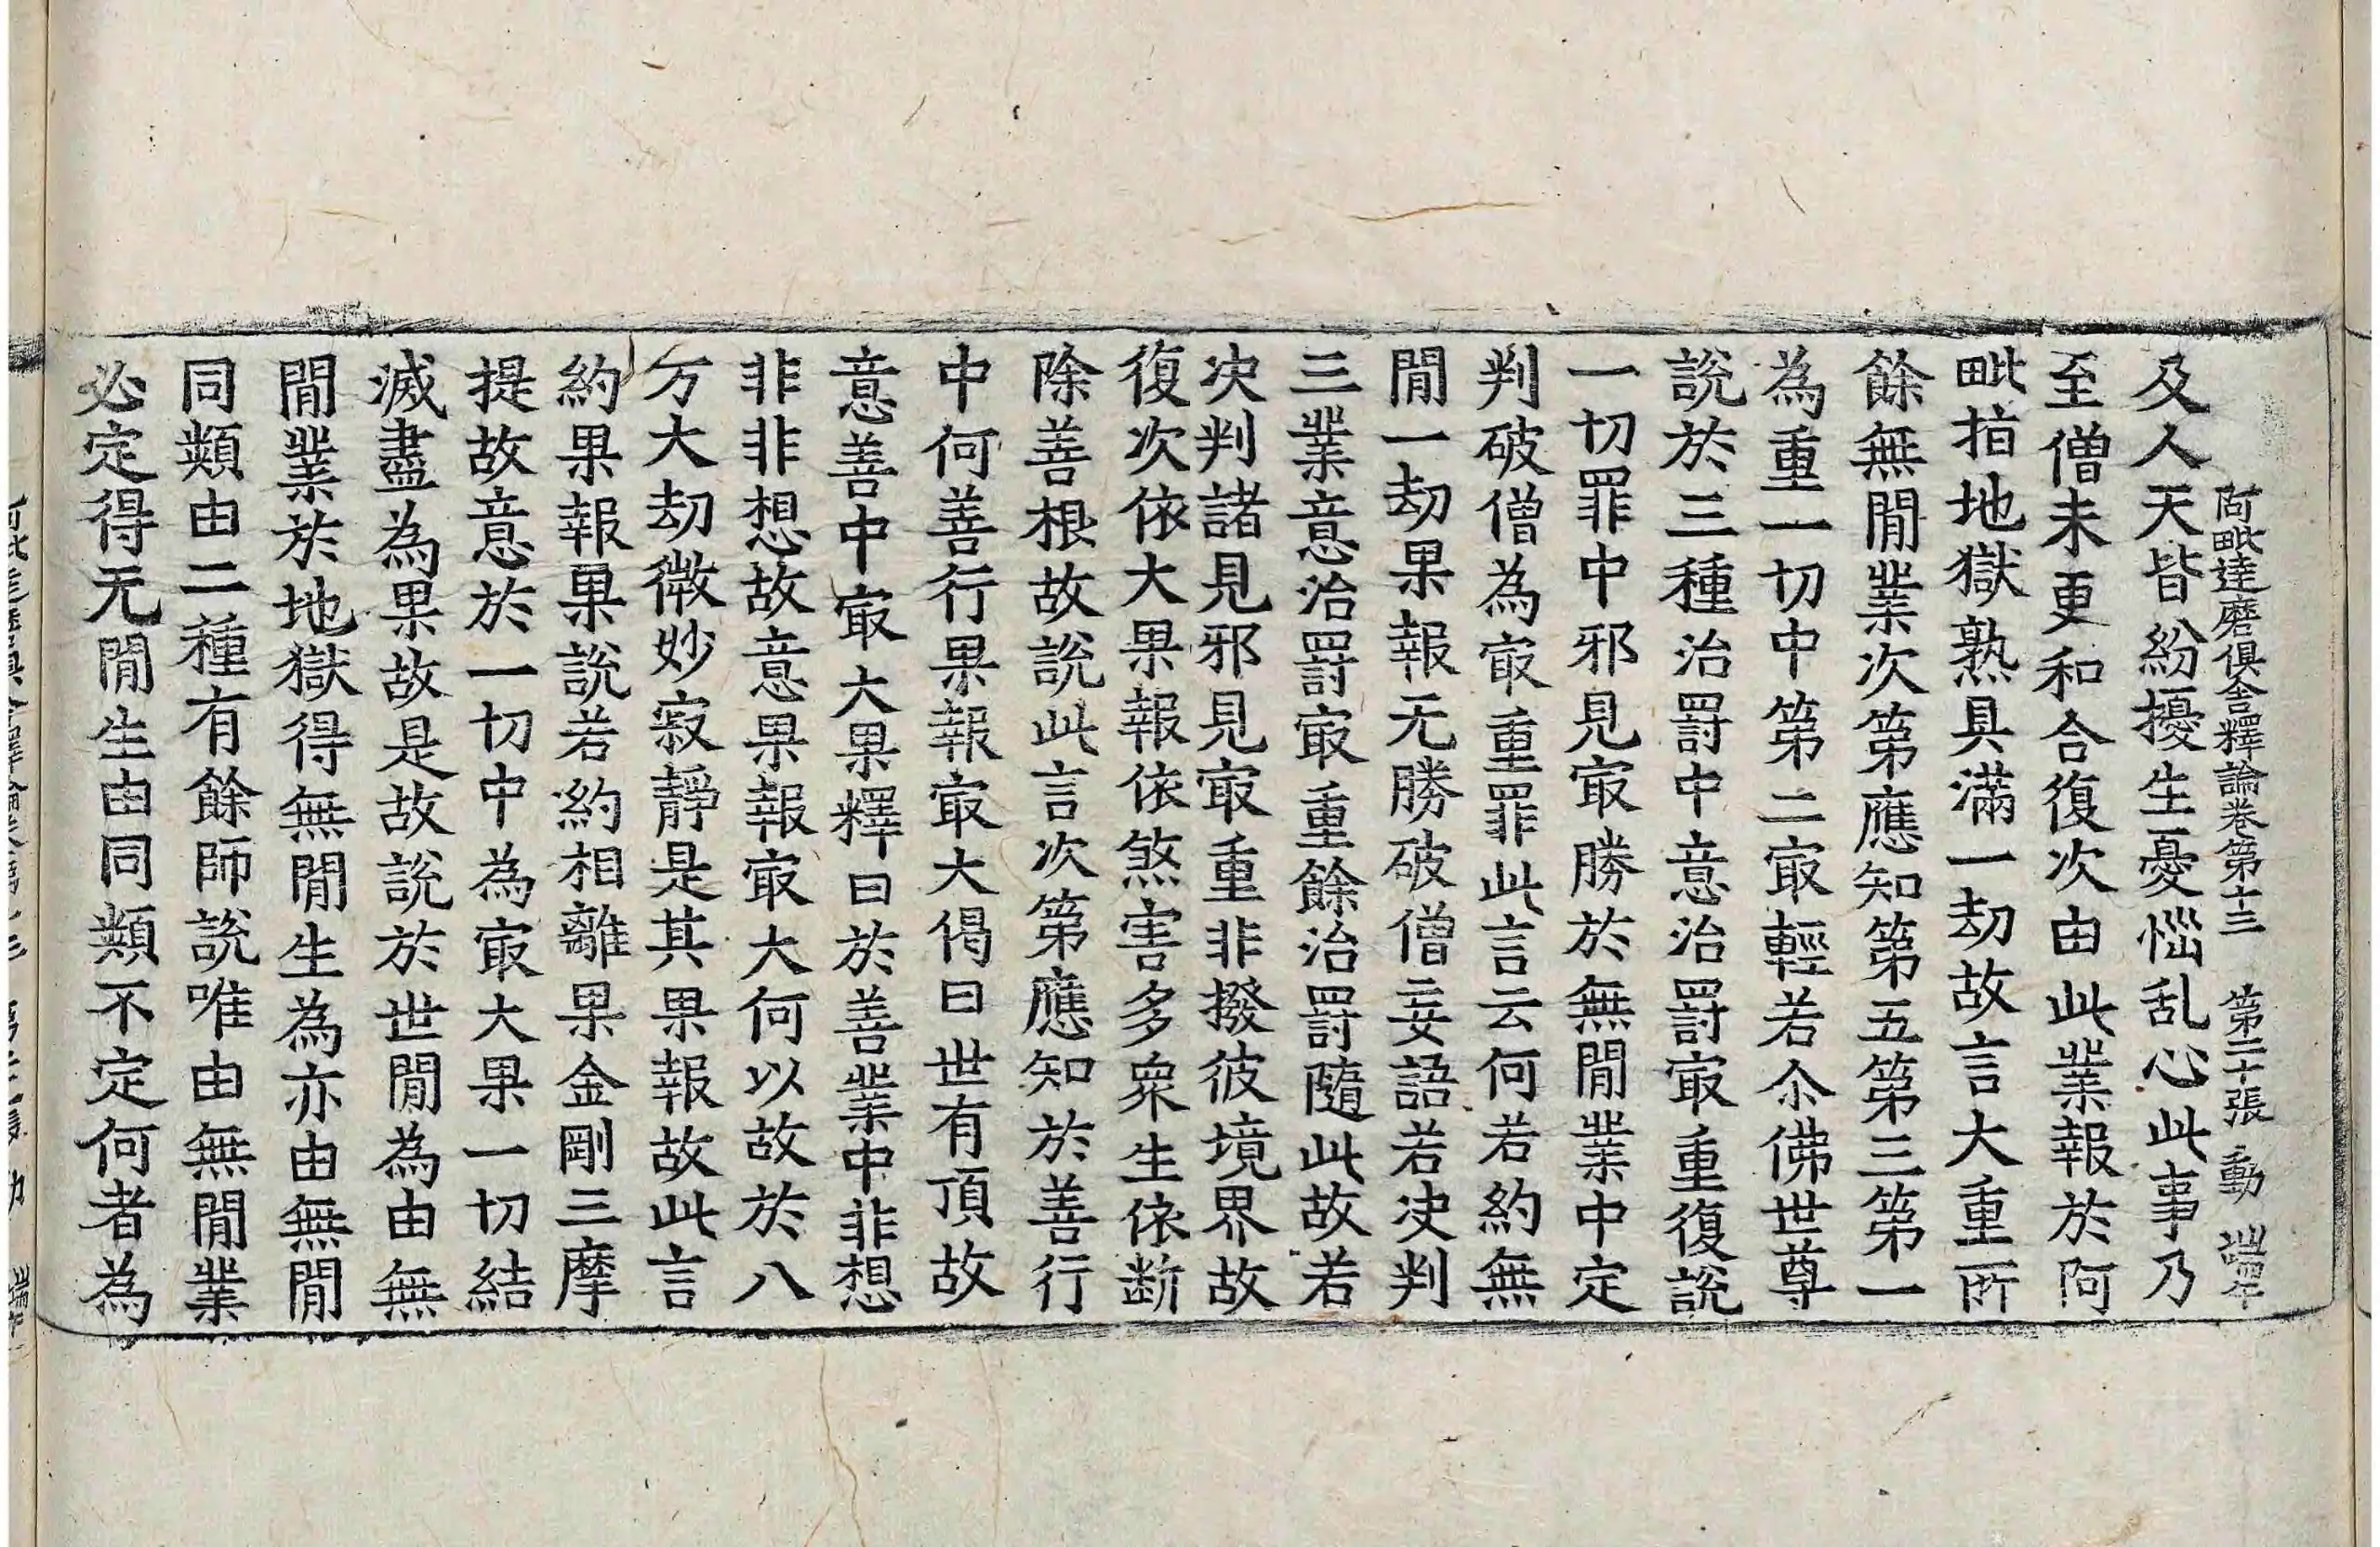 阿毗達磨俱舍釋論卷第十三 第二十張 動
及人天皆紛擾生憂惱乱心此事乃
至僧未更和合復次由此業報於阿
毗指地獄熟具滿一劫故言大重所
餘無閒業次第應知第五第三第一
為重一切中第二冣輕若尒佛世尊
說於三種治罰中意治罰冣重復說
一切罪中邪見冣勝於無閒業中定
判破僧為冣重罪此言云何若約無
閒一劫果報无勝破僧妄語若决判
三業意治罰冣重餘治罰隨此故若
决判諸見邪見冣重非撥彼境界故
復次依大果報依煞害多衆生依断
除善根故說此言次第應知於善行
中何善行果報冣大偈曰世有頂故
意善中冣大果釋曰於善業中非想
非非想故意果報冣大何以故於八
万大劫微妙寂靜是其果報故此言
約果報果說若約相離果金剛三摩
提故意於一切中為冣大果一切結
滅盡為果故是故說於世閒為由無
閒業於地獄得無閒生為亦由無閒
同類由二種有餘師說唯由無閒業
必定得无閒生由同類不定何者為